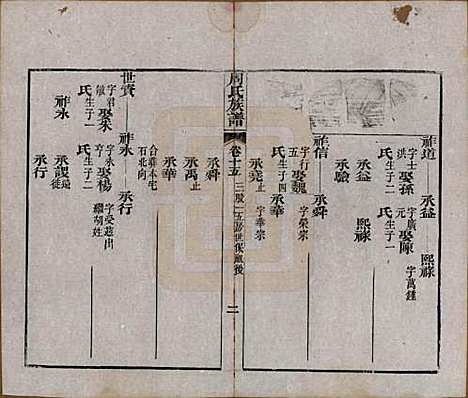 祚道 承益 熙祿
字士洪 娶孫氏生子二
字廣元 娶陳氏生子一
字萬鍾
承益 熙祿
承驗
祚信 承舜
字行五 娶魏氏生子四
字榮宗
承華
承堯止 字華宗
周氏族譜
卷十五
二
承舜
承禹止
承華
合葬本宅石北向
世賓 祚永 承行
字君敏 娶朱氏生子一
字永亨 娶楊氏生子二
字受益出繼胡姓
祚永 承謨延徒
承行